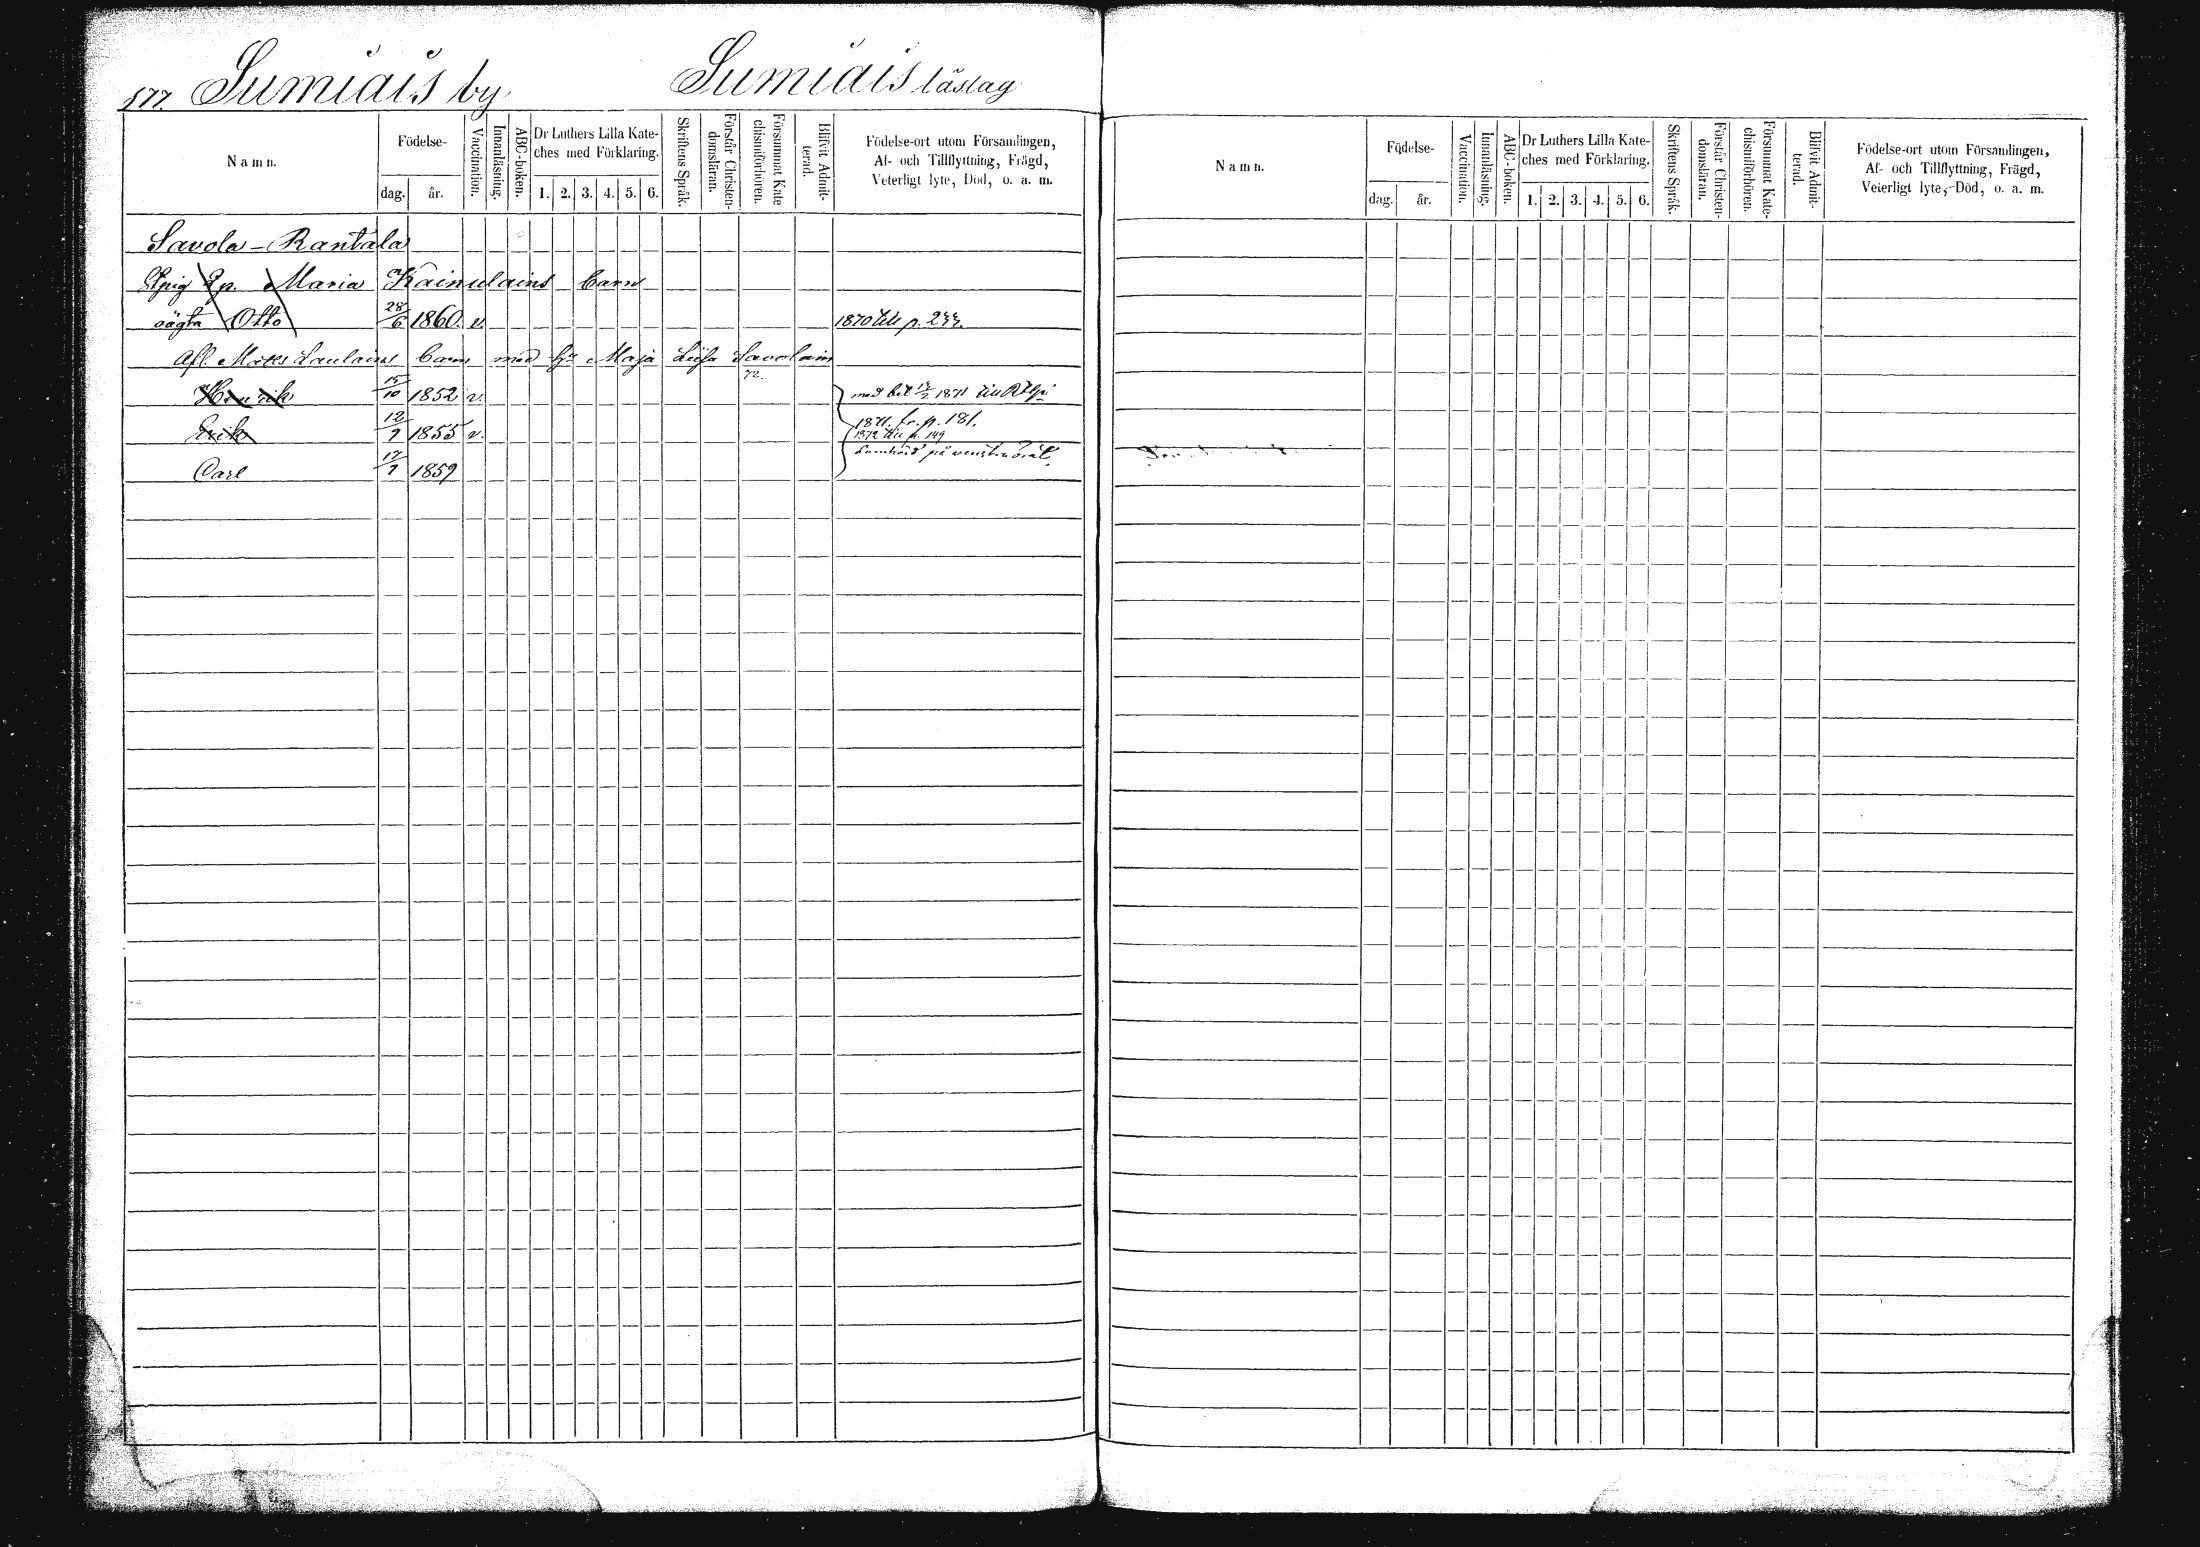 177. Sumiais by Sumiais läslag
Namn. Födelse- dag. år. Vaccination. Innanläsning. ABC-boken. Dr Luthers Lilla Kate-ches med Förklaring. 1. 2. 3. 4. 5. 6. Skriftens Språk. Förstår Christen-domsläran. Försummat Kate chismiförhören. Blifvit Admit-terad. Födelse-ort utom Församlingen, Af- och Tillflyttning, Frägd, Veterligt lyte, Död, o. a. m.
Savola-Rantala
Maria Kainulains barn
oägta Otto 28/6 1860. v. 1870 till p. 233.
Afl. Matts Laulains barn med Maja Liisa Savolain 72.
Henrik 15/10 1852 v. med bet 1871 till
Erik 12/9 1855 v. 1871. fr. p. 181.
1872 till p. 149
Carl 17/7 1859 på venstra
Namn. Födelse- dag. år. Vaccination. Innanläsning. ABC-boken. Dr Luthers Lilla Kate-ches med Förklaring. 1. 2. 3. 4. 5. 6. Skriftens Språk. Förstår Christen-domsläran. Försummat Kate-chismiförhören. Blifvit Admit-terad. Födelse-ort utom Församlingen, Af- och Tillflyttning, Frägd, Veterligt lyte, Död, o. a. m.